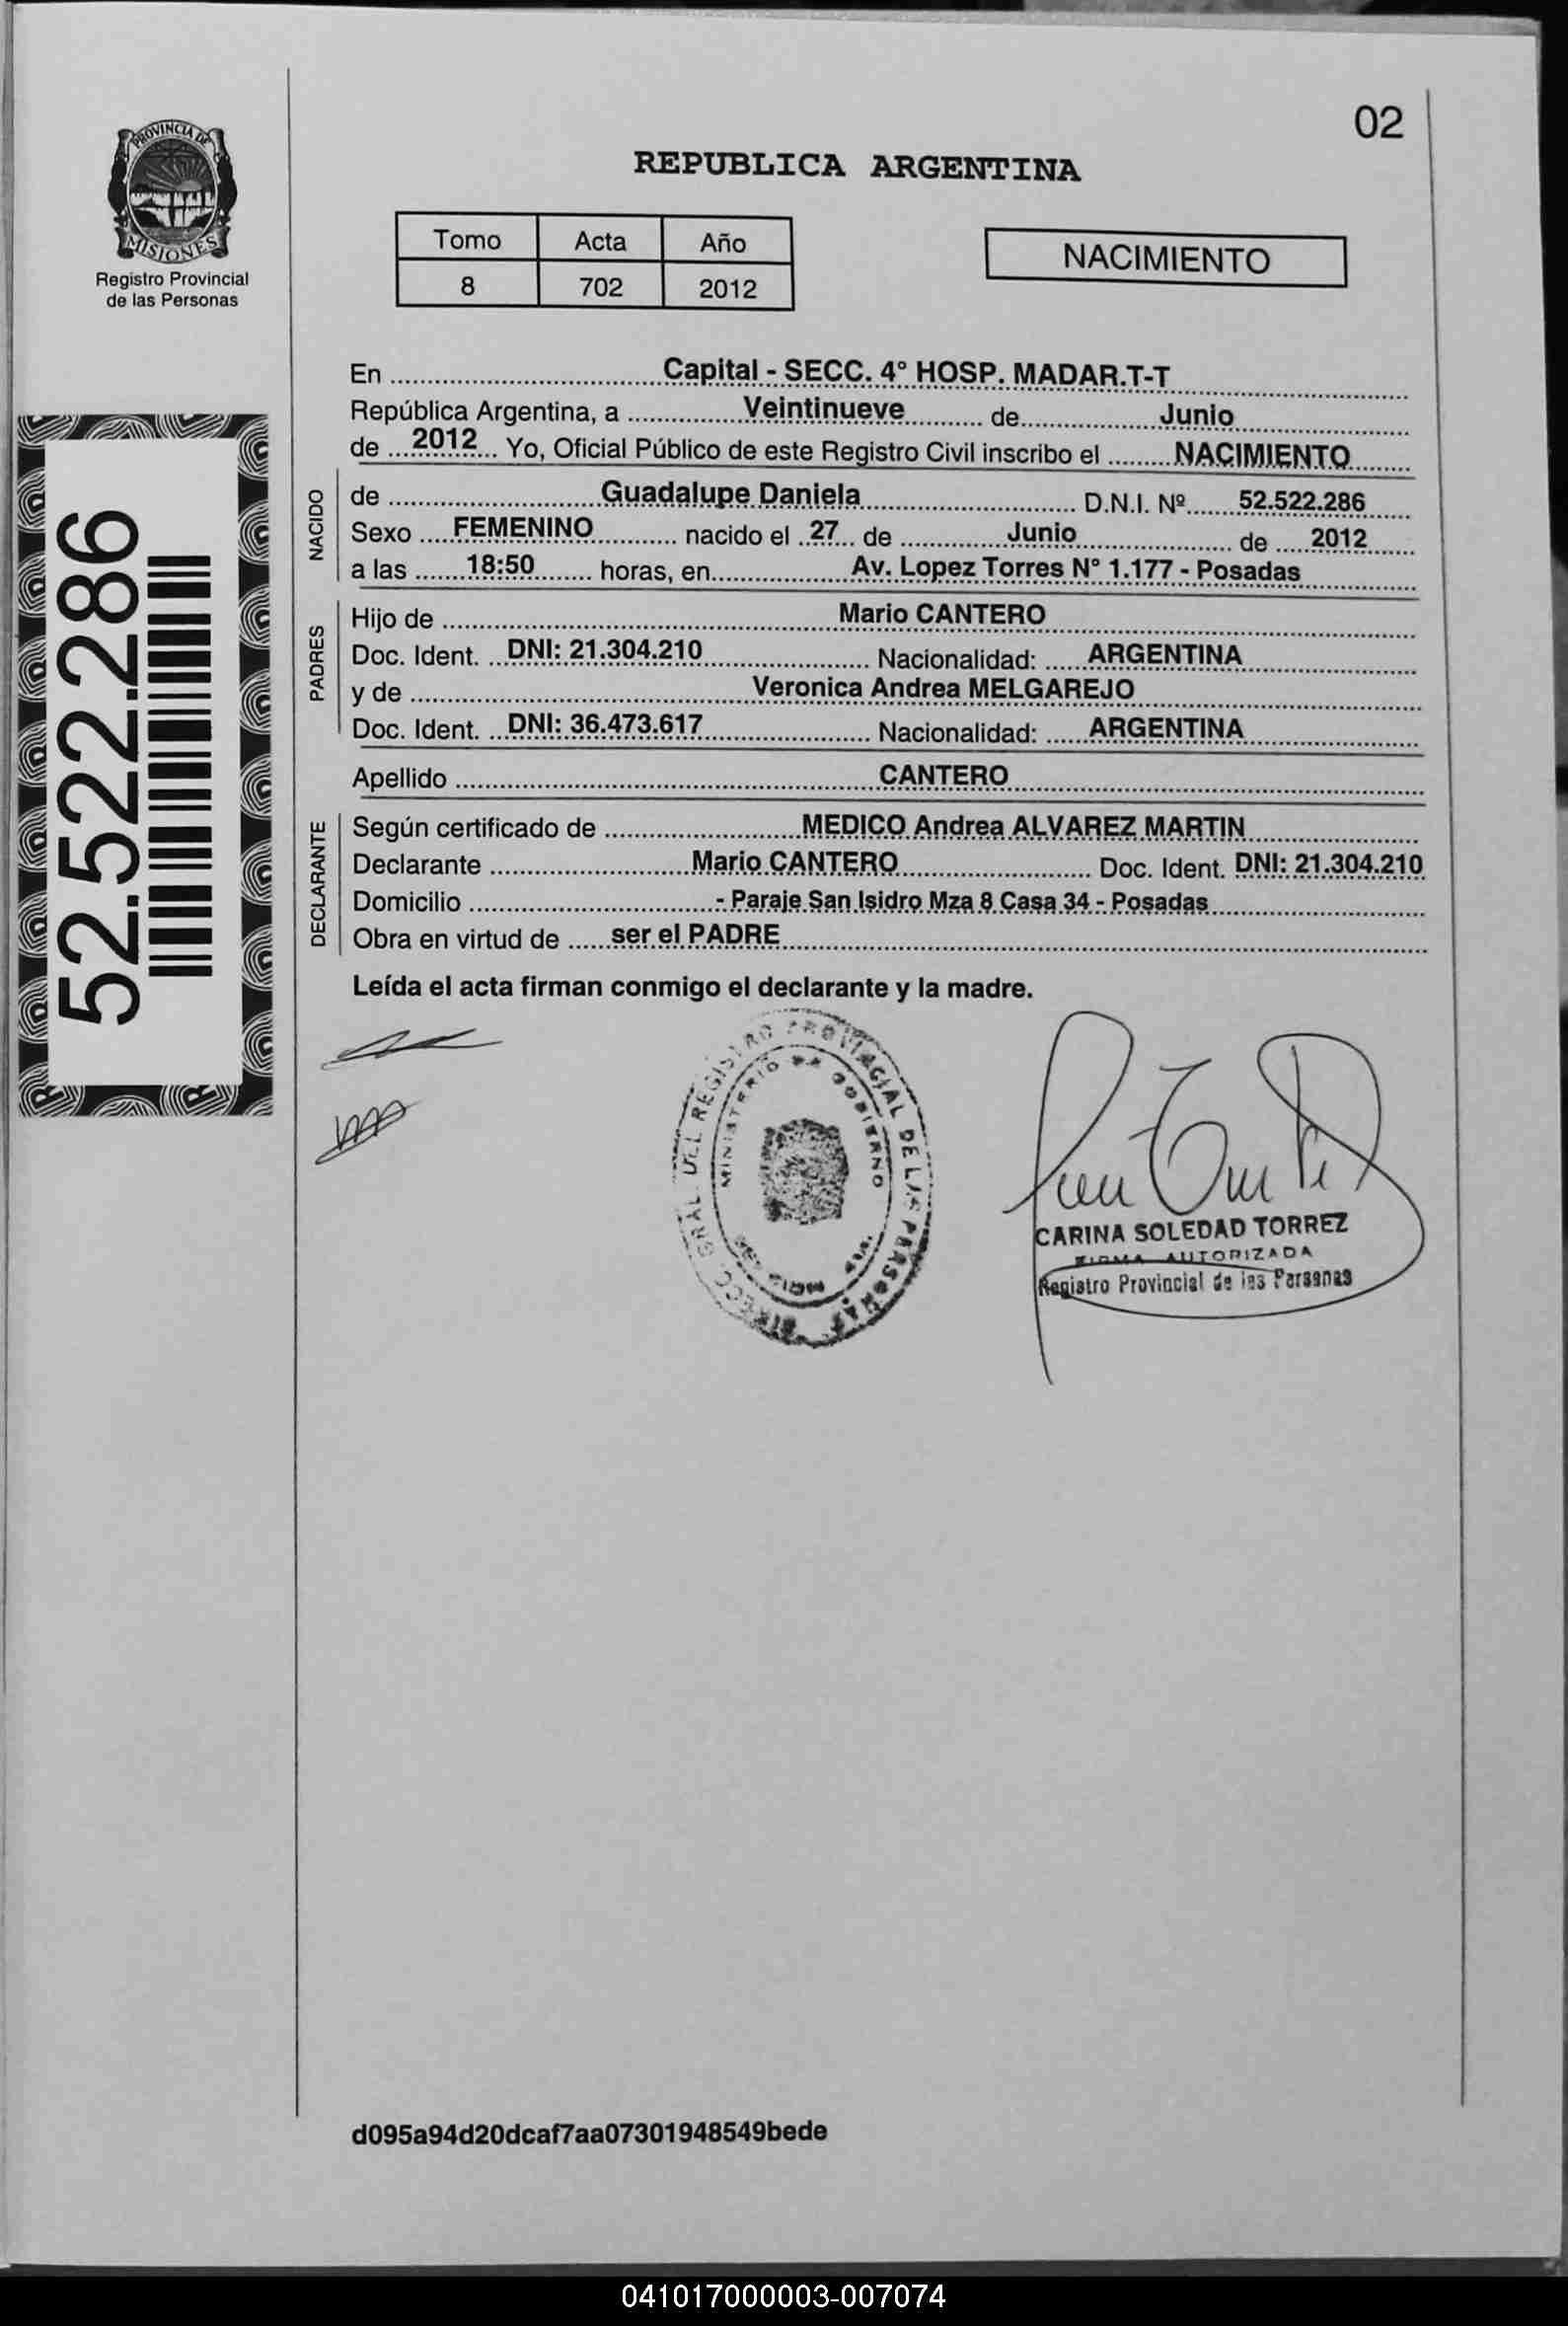 02
REPUBLICA ARGENTINA
PROVINCIA DE
MISIONES
Registro Provincial
de las Personas
Tomo Acta Año
8 702 2012
NACIMIENTO
En Capital - SECC. 4° HOSP. MADAR.T-T
República Argentina, a Veintinueve de Junio
de 2012 Yo, Oficial Público de este Registro Civil inscribo el NACIMIENTO
NACIDO
de Guadalupe Daniela D.N.I. Nº 52.522.286
Sexo FEMENINO nacido el 27 de Junio de 2012
a las 18:50 horas, en Av. Lopez Torres N° 1.177 - Posadas
PADRES
Hijo de Mario CANTERO
Doc. Ident. DNI: 21.304.210 Nacionalidad: ARGENTINA
y de Veronica Andrea MELGAREJO
Doc. Ident. DNI: 36.473.617 Nacionalidad: ARGENTINA
Apellido CANTERO
DECLARANTE
Según certificado de MEDICO Andrea ALVAREZ MARTIN
Declarante Mario CANTERO Doc. Ident. DNI: 21.304.210
Domicilio - Paraje San Isidro Mza 8 Casa 34 - Posadas
Obra en virtud de ser el PADRE
Leída el acta firman conmigo el declarante y la madre.
52.522.286
DIRECC. GRAL. DEL REGISTRO PROVINCIAL DE LAS PERSONAS
MINISTERIO DE GOBIERNO
CARINA SOLEDAD TORREZ
FIRMA AUTORIZADA
Registro Provincial de las Personas
d095a94d20dcaf7aa07301948549bede
041017000003-007074